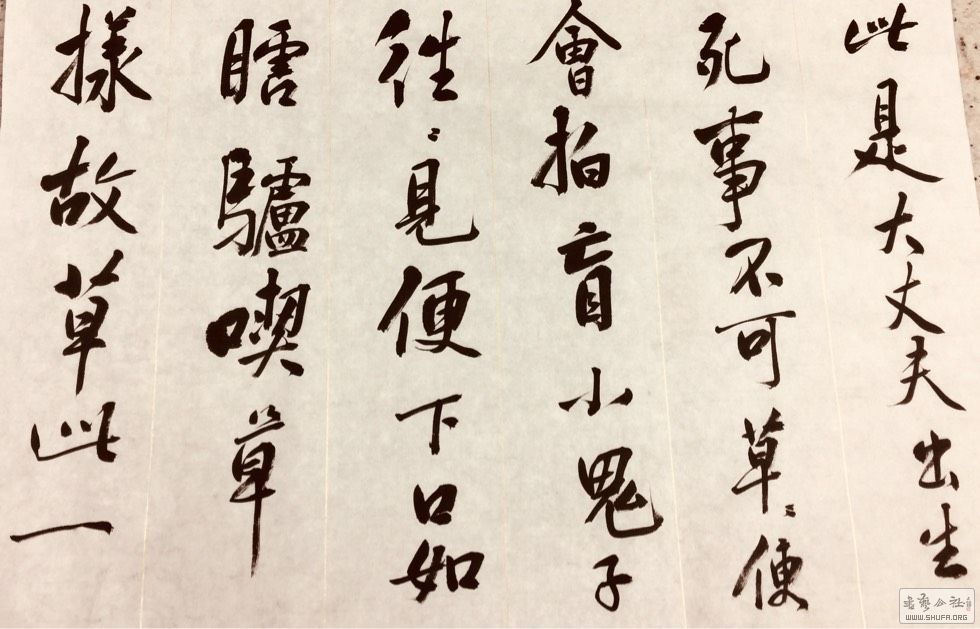 此是大丈夫出生
死事不可草〻便
會拍盲小鬼子
往〻見便下口如
瞎驢喫草
樣故草此一
書藝公社
WWW.SHUFA.ORG